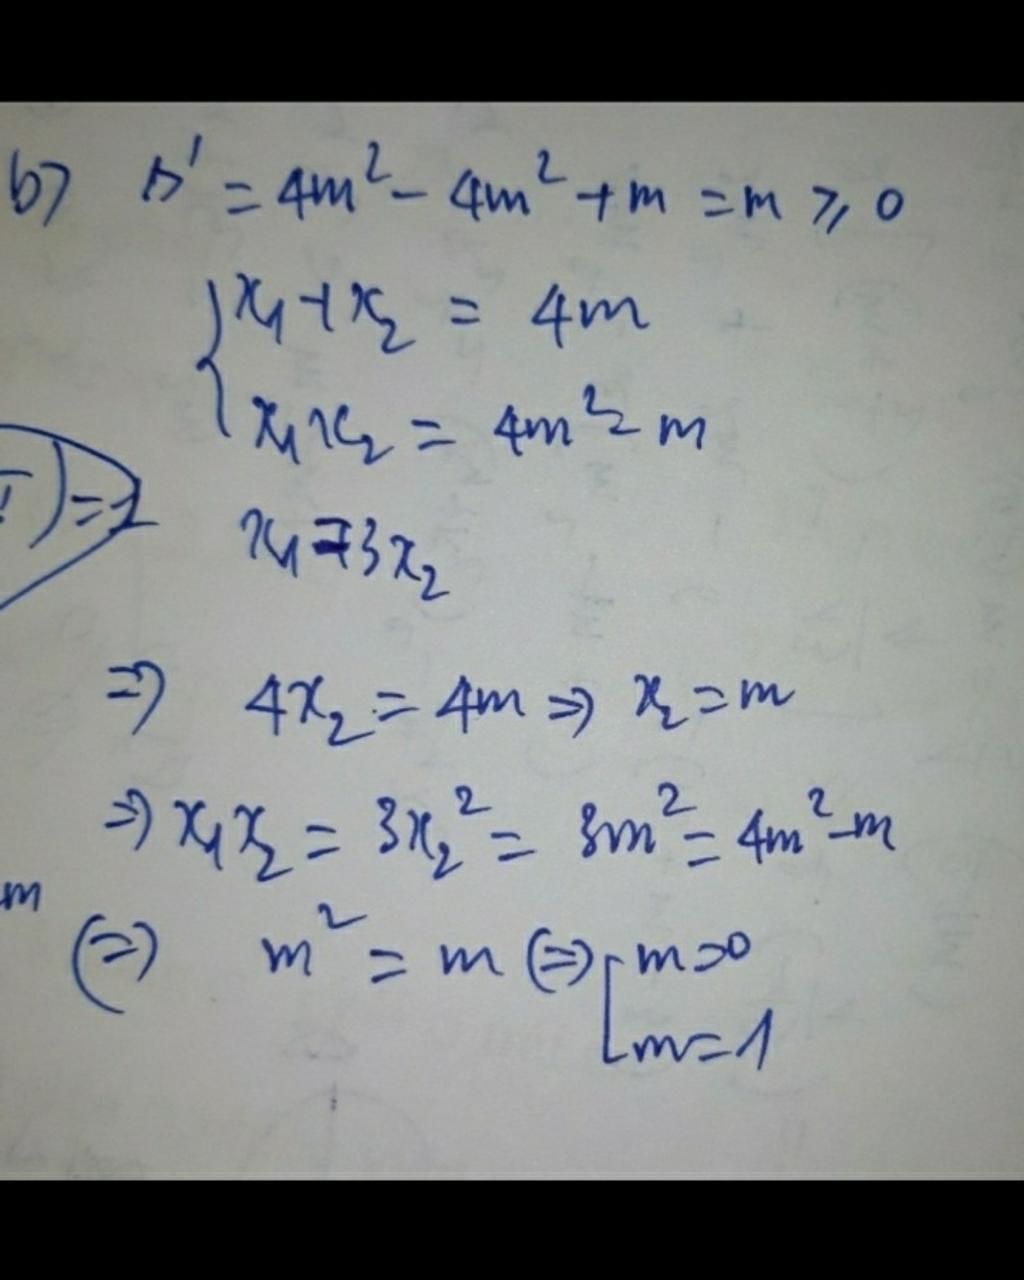 b) Δ' = 4m² - 4m² + m = m ⩾ 0
{ x₁ + x₂ = 4m
x₁x₂ = 4m² - m
) = 1
x₁ = 3x₂
⇒ 4x₂ = 4m ⇒ x₂ = m
⇒ x₁x₂ = 3x₂² = 3m² = 4m² - m
m
(⇒) m² = m (⇒) [ m = 0
m = 1